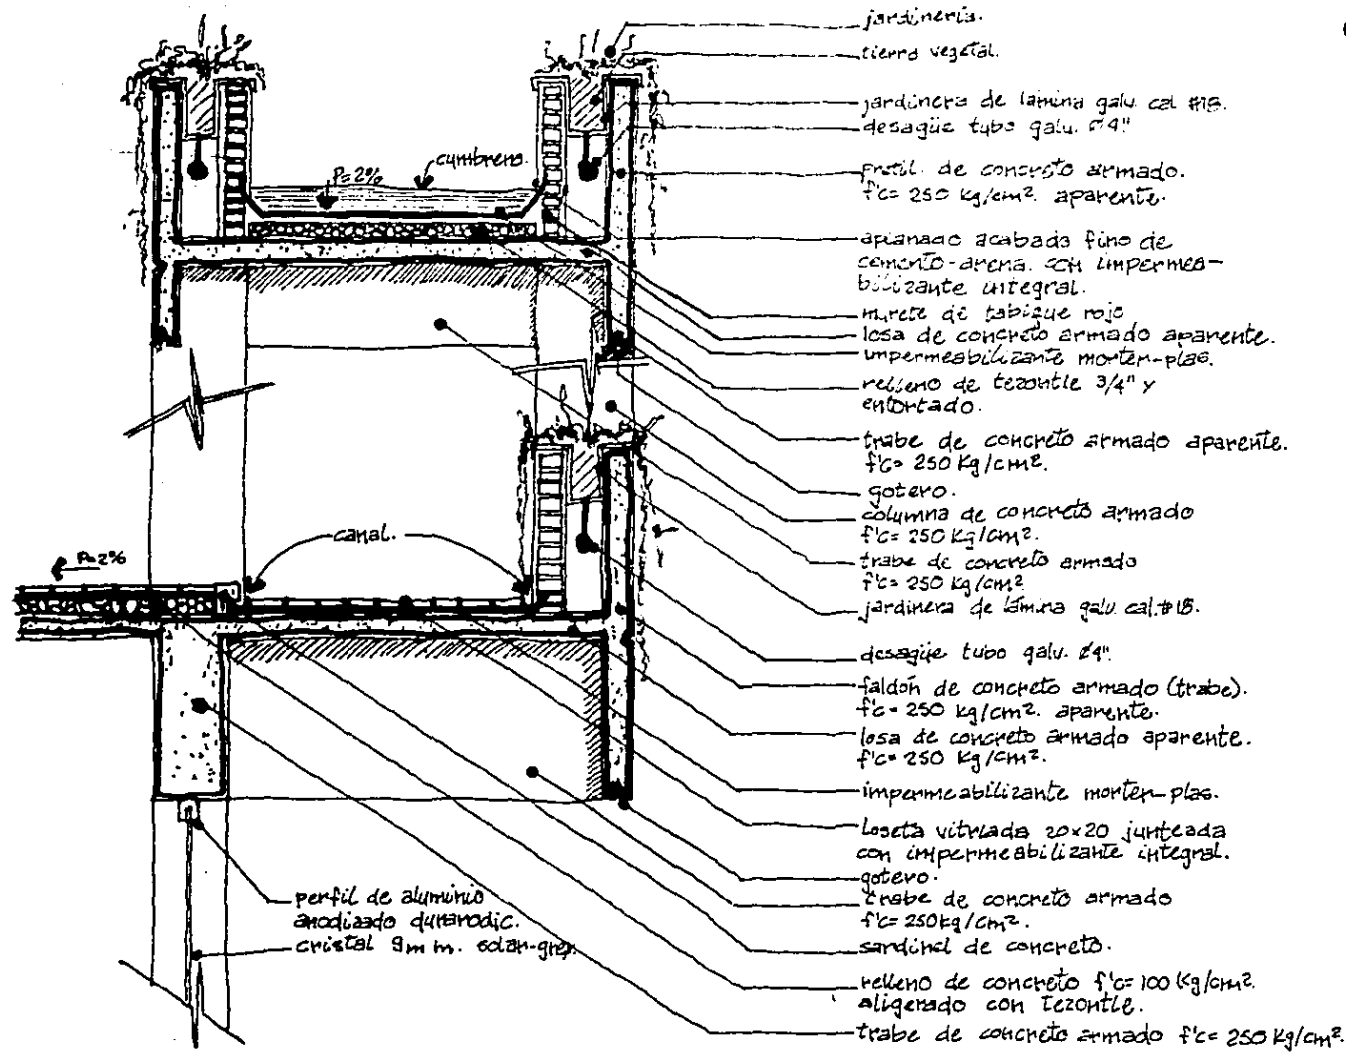 jardinería.
tierra vegetal.
jardinera de lámina galv. cal #18.
desagüe tubo galv. Ø4"
pretil de concreto armado.
f'c= 250 kg/cm². aparente.
cumbrera.
P=2%
aplanado acabado fino de
cemento-arena. con impermea-
bilizante integral.
murete de tabique rojo
losa de concreto armado aparente.
impermeabilizante morter-plas.
relleno de tezontle 3/4" y
entortado.
trabe de concreto armado aparente.
f'c= 250 Kg/cm².
gotero.
columna de concreto armado
f'c= 250 Kg/cm².
trabe de concreto armado
f'c= 250 Kg/cm²
jardinera de lámina galv. cal. #18.
canal.
P=2%
desagüe tubo galv. Ø4".
faldón de concreto armado (trabe).
f'c= 250 kg/cm². aparente.
losa de concreto armado aparente.
f'c= 250 Kg/cm².
impermeabilizante morter-plas.
loseta vitriada 20x20 junteada
con impermeabilizante integral.
gotero.
trabe de concreto armado
f'c= 250kg/cm².
sardinel de concreto.
relleno de concreto f'c= 100 Kg/cm².
aligerado con tezontle.
trabe de concreto armado f'c= 250 Kg/cm².
perfil de aluminio
anodizado duranodic.
cristal 9mm. solar-grey